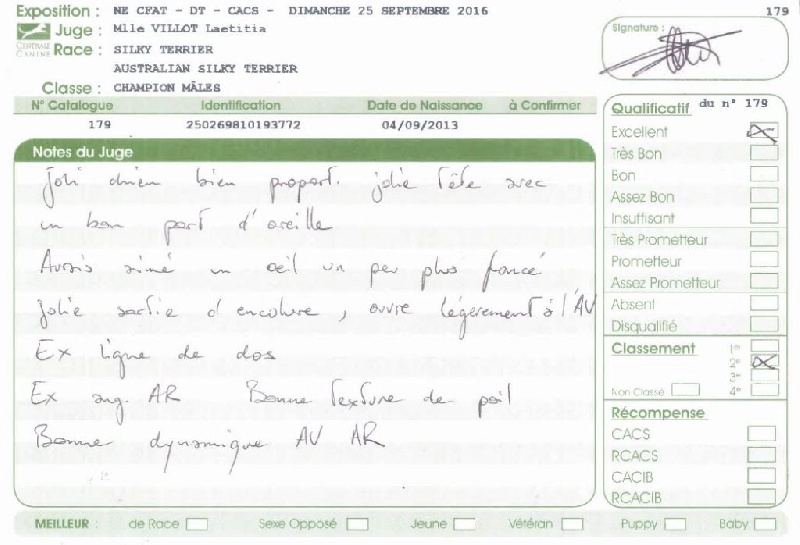 Exposition : NE CFAT - DT - CACS - DIMANCHE 25 SEPTEMBRE 2016 179
Juge : Mlle VILLOT Laetitia
CENTRALE CANINE
Race : SILKY TERRIER
AUSTRALIAN SILKY TERRIER
Classe : CHAMPION MÂLES
Signature :
N° Catalogue Identification Date de Naissance à Confirmer
179 250269810193772 04/09/2013
Notes du Juge
Joli chien bien proport. jolie tête avec
un bon port d'oreille
Aurais aimé un oeil un peu plus foncé
Jolie sortie d'encolure, ouvre légèrement à l'AV
Ex ligne de dos
Ex ang AR Bonne texture de poil
Bonne dynamique AV AR
Qualificatif du n° 179
Excellent
Très Bon
Bon
Assez Bon
Insuffisant
Très Prometteur
Prometteur
Assez Prometteur
Absent
Disqualifié
Classement 1e
2e
3e
Non Classé 4e
Récompense
CACS
RCACS
CACIB
RCACIB
MEILLEUR : de Race Sexe Opposé Jeune Vétéran Puppy Baby